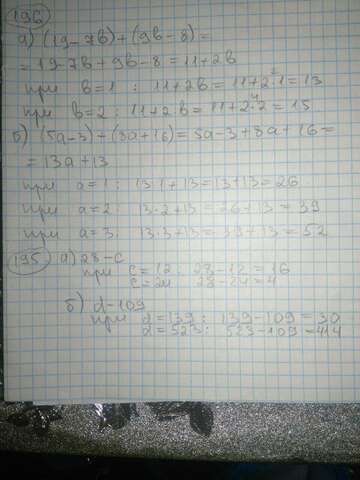 196
а) (19-7b)+(9b-8)=
= 19-7b+9b-8=11+2b
при b=1 : 11+2b=11+2·1=13
при b=2 : 11+2b=11+2·2=15
б) (5a-3)+(8a+16)=5a-3+8a+16=
= 13a+13
при a=1: 13·1+13=13+13=26
при a=2: 13·2+13=26+13=39
при a=3: 13·3+13=39+13=52
195 а) 28-c
при c=12: 28-12=16
c=24 28-24=4
б) d-109
при d=139: 139-109=30
d=523: 523-109=414